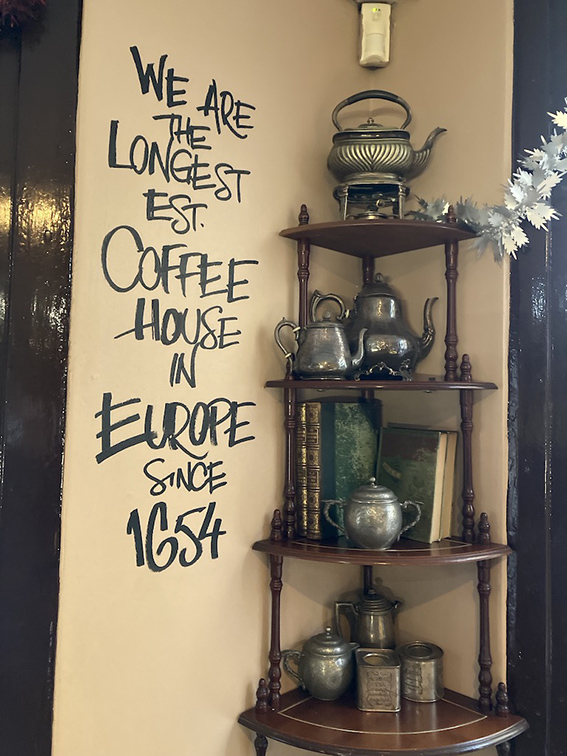 WE ARE
THE
LONGEST
EST.
COFFEE
HOUSE
IN
EUROPE
SINCE
1654